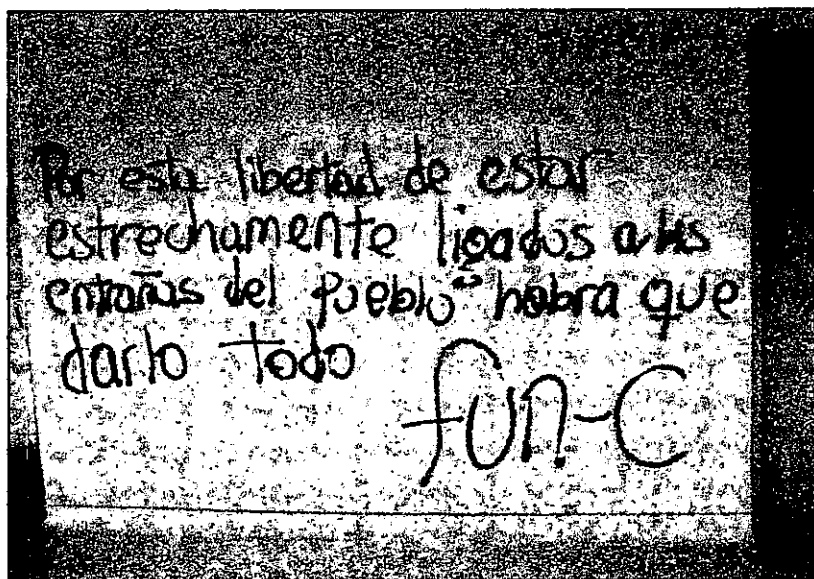 Por esta libertad de estar
estrechamente ligados a las
entrañas del pueblo" habra que
darlo todo
fun-C